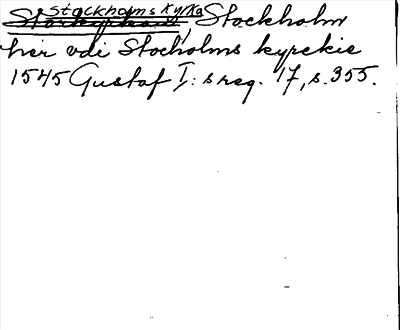 Stockholms Kyrka
Storkyrkan, Stockholm
her vdi Stocholms kyrckie
1545 Gustaf I:s reg. 17, s. 355.